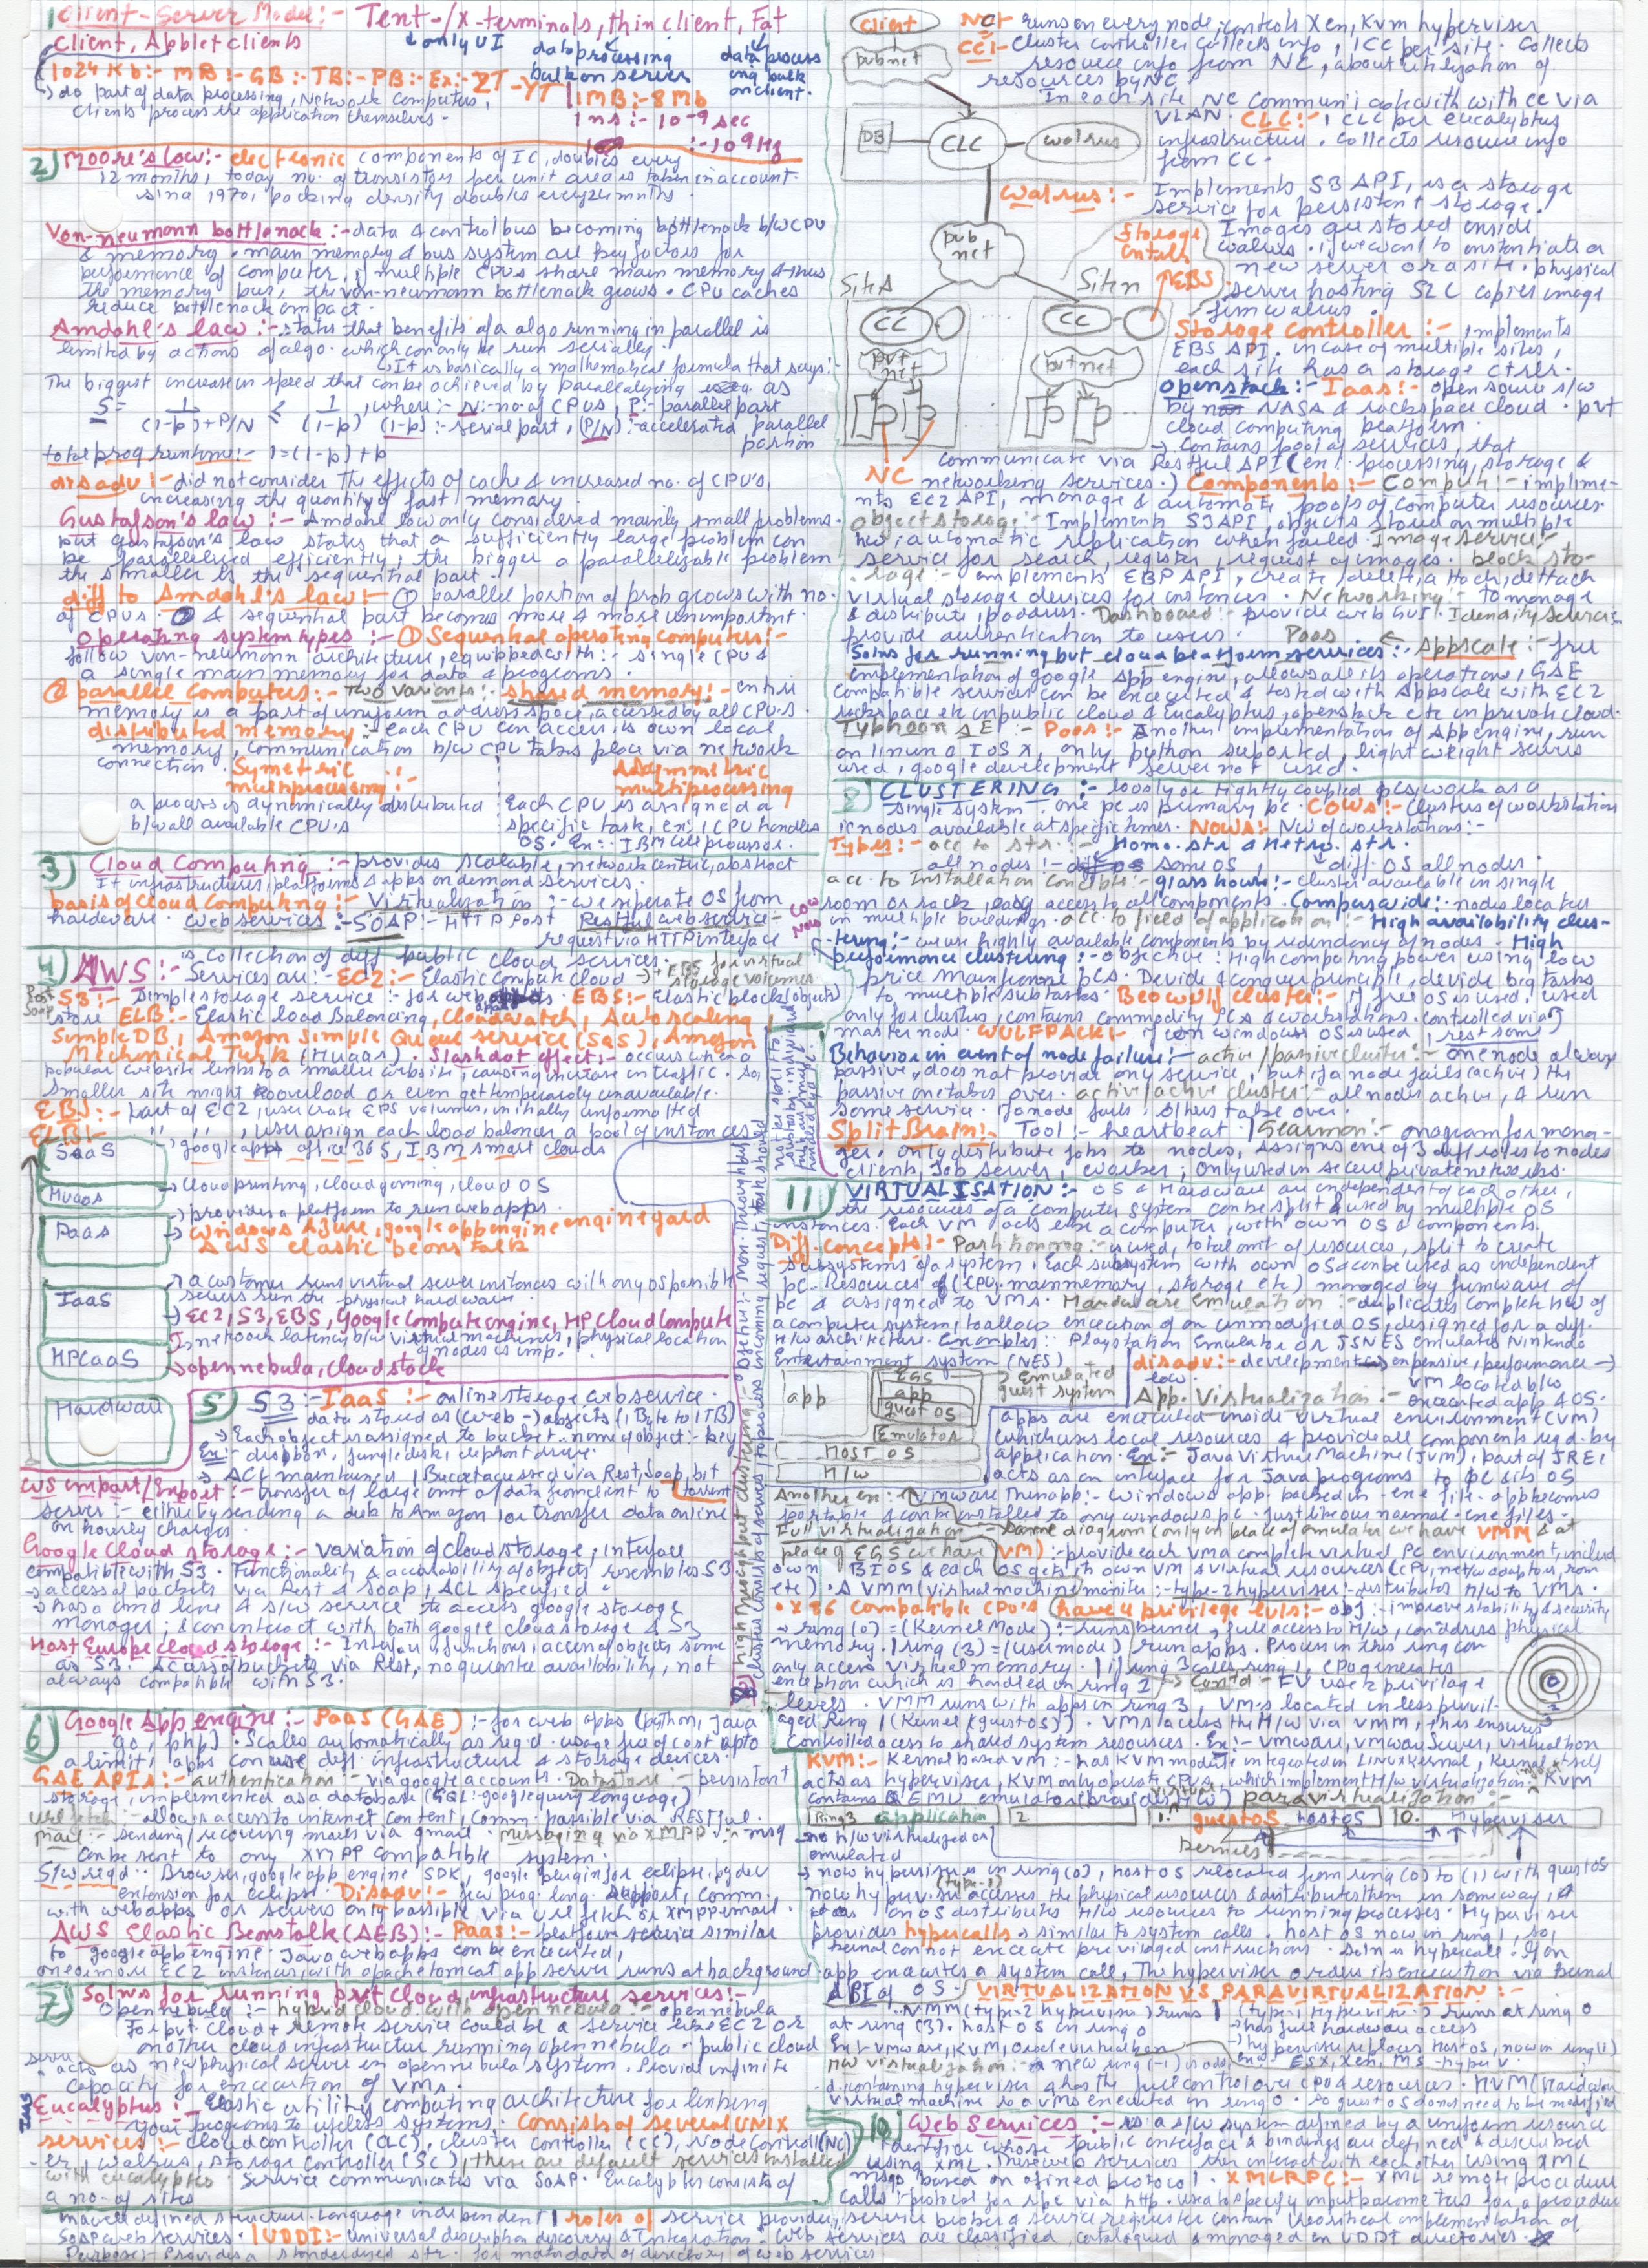 Client-Server Model:- Text-/x-terminals, thin client, Fat
Client, Applet clients
only UI
data processing bulk on server
data processing bulk on client.
1024 Kb:- MB:- GB:- TB:- PB:- Ex:- ZT-YT
1MB:- 8Mb
do part of data processing, Network Computers,
clients process the application themselves.
1ns:- 10-9 sec
:-10 9Hz
2) Moore's law:- electronic components of IC, doubles every
12 months, today no. of transistors per unit area is taken in account
since 1970, packing density doubles every 24 months.
Von-neumann bottleneck:- data & control bus becoming bottleneck b/w CPU
& memory. main memory & bus system are key factors for
performance of computer, if multiple CPUs share main memory & thus
the memory bus, the von-neumann bottleneck grows. CPU caches
reduce bottleneck impact.
Amdahl's law:- states that benefits of a algo running in parallel is
limited by actions of algo. which can only be run serially.
It is basically a mathematical formula that says:-
The biggest increase in speed that can be achieved by parallelizing as
S = 1/(1-p)+P/N ≤ 1/(1-p), where:- N:- no. of CPUs, P:- parallel part
(1-p):- serial part, (P/N):- accelerated parallel portion
total prog runtime:- 1=(1-p)+p
disadv:- did not consider the effects of cache & increased no. of CPU's,
increasing the quantity of fast memory.
Gustafson's law:- Amdahl law only considered mainly small problems.
but gustafson's law states that a sufficiently large problem can
be parallelised efficiently, the bigger a parallelizable problem
the smaller is the sequential part.
diff to Amdahl's law:- ① parallel portion of prob grows with no.
of CPUs. & sequential part becomes more & more unimportant.
Operating system types:- ① Sequential operating computer:-
follow von-neumann architecture, equipped with:- single CPU &
a single main memory for data & programs.
② parallel Computers:- Two variants:- shared memory:- entire
memory is a part of uniform address space, accessed by all CPU's.
distributed memory:- each CPU can access its own local
memory, communication b/w CPU takes place via network
connection.
Symetric multiprocessing:-
a process is dynamically distributed
b/w all available CPU's
Asymmetric multiprocessing
Each CPU is assigned a
specific task, ex: 1 CPU handles
OS. Ex:- IBM cell processor.
3) Cloud Computing:- provides scalable, network centric, abstract
It infrastructures, platforms & apps on demand services.
basis of Cloud Computing:- Virtualization:- we seperate OS from
hardware. Web services:- SOAP:- HTTP Post Restful web service-
request via HTTP interface
4) AWS:- is collection of diff public cloud services.
Services are:- EC2:- Elastic Compute cloud → + EBS for virtual storage volumes
S3:- Simple storage service:- for web objects. EBS:- Elastic block
store ELB:- Elastic load Balancing, Cloudwatch, Auto scaling
Simple DB, Amazon Simple Queue service (SQS), Amazon
Mechanical Turk (Huaas). Slashdot effect:- occurs when a
popular website links to a smaller website, causing increase in traffic. So,
smaller site might overload or even get temporarily unavailable.
EBS:- part of EC2, user create EPS volumes, initially unformatted
ELB:- " " " , user assign each load balancer a pool of instances
SaaS → google apps office 365, IBM smart clouds
Huaas → cloud printing, cloud gaming, cloud OS
PaaS → provides a platform to run web apps.
→ windows Azure, google app engine engine yard
AWS elastic beans talk
IaaS → a customer runs virtual server instances with any OS possible
servers run the physical hardware.
→ EC2, S3, EBS, Google Compute engine, HP Cloud Compute
HPCaaS → network latency b/w virtual machines, physical location of nodes is imp.
→ opennebula, cloud stack
Hardware
5) S3:- IaaS:- online storage webservice.
data stored as (web-) objects (1Byte to 1TB)
→ Each object is assigned to bucket. name of object:- key
Ex:- dropbox, jungle disk, elephant drive.
→ ACL maintained, | Bucket accessed via Rest, Soap, bit torrent
AWS import/Export:- transfer of large amt of data from client to
server:- either by sending a disk to Amazon or transfer data online
on hourly charges.
Google Cloud storage:- variation of cloud storage, interface
compatible with S3. Functionality & availability of objects resembles S3
→ access of buckets via Rest & soap, ACL specified
→ has a cmd line & s/w service to access google storage
manager, & can interact with both google cloud storage & S3
Host Europe cloud storage:- Interface, functions, access of objects same
as S3. Access of buckets via Rest, no guarantee availability, not
always compatible with S3.
6) Google App engine:- PaaS (GAE):- for web apps (python, Java
go, php). Scales automatically as reqd. usage free of cost upto
a limit, apps can use diff. infrastructure & storage devices.
GAE APIs:- authentication:- via google accounts. Datastore:- persistent
storage, implemented as a database (GQL:- google query language)
Url fetch:- allows access to internet content, Comm. possible via RESTful.
Mail:- sending/receiving mails via gmail. Messaging via XMPP:- msg
can be sent to any XMPP compatible system.
S/w reqd:- Browser, google app engine SDK, google plugin for eclipse, pydev
extension for eclipse. Disadv:- few prog. lang. support, comm.
with webapps or servers only possible via url fetch or xmpp email.
AWS Elastic Beanstalk (AEB):- Paas:- platform service similar
to google app engine. Java webapps can be executed,
one or more EC2 instances, with apache tomcat app server runs at background
7) Solns for running pvt Cloud infrastructure services:-
Opennebula:- hybrid cloud with open nebula:- opennebula
for pvt. Cloud + remote service could be a service like EC2 or
another cloud infrastructur running opennebula. public cloud
acts as new physical server in opennebula system. Provide infinite
capacity for execution of VMs.
Eucalyptus:- Elastic utility computing architecture for linking
your programs to useless systems. Consists of several UNIX
services:- cloud controller (CLC), cluster controller (CC), Node Controll(NC)
er, walrus, storage controller (SC), these are default services installed
with eucalyptus. Service communicates via SOAP. Eucalyptus consists of
a no. of sites
8) high throughput clustering:- Objective:- max. Throughput
cluster consists of servers, to process incoming request, task should
not be split to subtasks, individual
Client
pub net
DB
CLC
walrus
pub net
Site A
Site n
CC
CC
pvt net
pvt net
NC
Storage Cntrlls
EBS
NC:- runs on every node, controls Xen, Kvm hyperviser
CC:- Cluster controller collects info, 1 CC per site. Collects
resource info from NC, about utilization of
resources by NC.
In each site NC communicate with cc via
VLAN. CLC:- 1 CLC per eucalyptus
infrastructure. Collects resource info
from CC.
Walrus:- Implements S3 API, is a storage
service for persistent storage.
Images are stored inside
walrus. if we want to instantiate a
new server or a site. physical
server hosting SLC copies image
from walrus.
Storage Controller:- implements
EBS API. in case of multiple sites,
each site has a storage ctrler.
Openstack:- Iaas:- open source s/w
by NASA & rackspace cloud. pvt
cloud computing platform.
→ Contains pool of services, that
communicate via Restful API (en:- processing, storage &
networking services.) Components:- Compute:- impleme-
nts EC2 API, manage & automate pools of computer resources.
Object storage:- Implements S3API, objects stored on multiple
hw, automatic replication when failed. Image service:-
service for search, register, request of images. block sto-
rage:- implements EBP API, create, delete, attach, dettach
virtual storage devices for instances. Networking:- to manage
& distribute ip address. Dashboard:- provide web GUI. Identity service:-
provide authentication to users.
Solns for running pvt cloud platform services:- Appscale:- free
implementation of google App engine, allows all its operations, GAE
compatible services can be executed & tested with Appscale with EC2
rackspace etc in public cloud & Eucalyptus, openstack etc in private cloud.
Typhoon AE:- Paas:- Another implementation of App engine, run
on linux & IOS x, only python suported, light weight servers
used, google development server not used.
8) CLUSTERING:- loosly or Highly coupled pcs, work as a
single system. one pc is primary pc. COWs:- Clusters of workstation
ie nodes available at specific times. NOWs:- NW of workstations:-
Types:- acc to str:- Homo. str & Hetro. str.
all nodes:- same OS, diff. OS all nodes.
acc. to Installation Concepts:- glass house:- cluster available in single
room or rack, easy access to all components. Campus wide:- nodes located
in multiple buildings. acc. to field of application:- High availability clus-
tering:- we use highly available components by redundency of nodes. High
performance clustering:- objective: High computing power using low
price mainframe pcs. Devide & conquer principle, devide big tasks
to multiple subtasks. Beowulf cluster:- if free OS is used, used
only for cluster, contains commodity PCs & workstations. controlled via
master node. WULFPACK:- if windows OS is used, rest same
Behavior in event of node failure:- active/passive cluster:- one node always
passive, does not provide any service, but if a node fails (active) the
passive one takes over. active/active cluster:- all nodes active, & run
same service. if a node fails, others take over.
Split Brain:- Tool:- heartbeat. | Gearman:- anagram for mana-
ger, only distribute jobs to nodes, Assigns one of 3 diff roles to nodes
client, Job server, worker; Only used in secure private networks.
11) VIRTUALISATION:- OS & Hardware are independent of each other,
the resources of a computer system can be split & used by multiple OS
instances. Each VM acts like a computer, with own OS & components.
Diff. concepts:- Partitioning:- is used, total amt of resources, split to create
subsystems of a system. Each subsystem with own OS & can be used as independent
pc. Resources (CPU, main memory, storage etc) managed by firmware of
pc & assigned to VMs. Hardware Emulation:- duplicates complete HW of
a computer system, to allow execution of an unmodified OS, designed for a diff.
H/w architecture. Examples:- Playstation Emulator or JSNES emulates Nintendo
Entertainment system (NES)
disadv:- development expensive, performance low.
app
app
guest OS
Emulator
HOST OS
H/W
Emulated guest system
App. Virtualization:- VM located b/w executed app & OS.
apps are executed inside virtual environment (VM)
which uses local resources & provide all components reqd. by
application. Ex:- Java Virtual Machine (JVM), part of JRE,
acts as an interface for Java programs to pc & its OS
Another en:- VMware Thinapp:- windows app. packed in .exe file. app becomes
portable & can be installed to any windows pc. just like normal .exe files.
Full virtualization:- same diagram (only in place of emulator we have VMM & at
place of EGS we have VM):- provide each vm a complete virtual PC environment, includ
own BIOS & each OS gets its own VM & virtual resources (CPU, netw adaptors, rom
etc). A VMM (virtual machine moniter:- type-2 hyperviser:- distributes H/w to VMs.
X86 compatible CPU's have 4 privilege lvls:- obj:- improve stability & security
→ ring(0) = (Kernel Mode):- runs kernel, full access to H/w, can address physical
memory. | ring(3) = (user mode) run apps. Process in this ring can
only access virtual memory. | if ring 3 calls ring 1, CPU generates
exception which is handled in ring 1 → Contd → FV use 2 privilage
levels. VMM runs with apps in ring 3, VM's located in less privil-
aged Ring 1 (Kernel (guest OS)). VMs access the H/w via VMM, this ensures
controlled access to shared system resources. Ex:- VMware, VMware Server, virtual box
KVM:- Kernel based vm:- has KVM module integrated in Linux kernel, Kernel itself
acts as hyperviser, KVM only operate CPUs, which implement H/w virtualization. KVM
contains QEMU emulator
paravirtualization:-
Ring 3 application | 2 | 1. guest OS host OS | 0. Hyperviser
→ no h/w virtualized or emulated
→ now hyperviser is in ring(0), host OS relocated from ring(0) to (1) with guest OS
now hyperviser (type-1) accesses the physical resources & distributes them in same way,
an OS distributes H/w resources to running processes. Hyperviser
provides hypercalls, similar to system calls. host OS now in ring 1, so,
kernal cannot execute previlaged instructions. Soln is hypercall. If an
app executes a system call, The hyperviser orders its execution via kernal
API of OS.
VIRTUALIZATION VS PARAVIRTUALIZATION:-
VMM (type-2 hyperviser) runs
at ring (3). host OS in ring 0
Ex:- VMware, KVM, Oracle virtualbox
(type-1 hyperviser) runs at ring 0
→ has full hardware access
→ hyperviser replaces host OS, now in ring(1)
en:- ESX, Xen, MS-hyper v.
HW virtualization:- new ring (-1) is added
containing hyperviser & has the full control over CPU & resources. HVM (Hardware
virtual machine) & VMs executed in ring 0. So guest OS do not need to be modified
10) Web Services:- is a s/w system defined by a uniform resource
identifier whose public interface & bindings are defined & described
using XML. These web services then interact with each other using XML
msgs based on afined protocol. XMLRPC:- XML remote procedure
calls:- protocol for rpc via http. Used to specify input parameters for a procedure
have defined structure. Language independent | roles of service provider, service broker & service requester contain theoritical implementation of
SOAP web services. | UDDI:- universal description discovery & Integration. Web services are classified, catalogued & managed in UDDI directories.
Purpose:- Provides a standardised str. for meta data of directory of web services